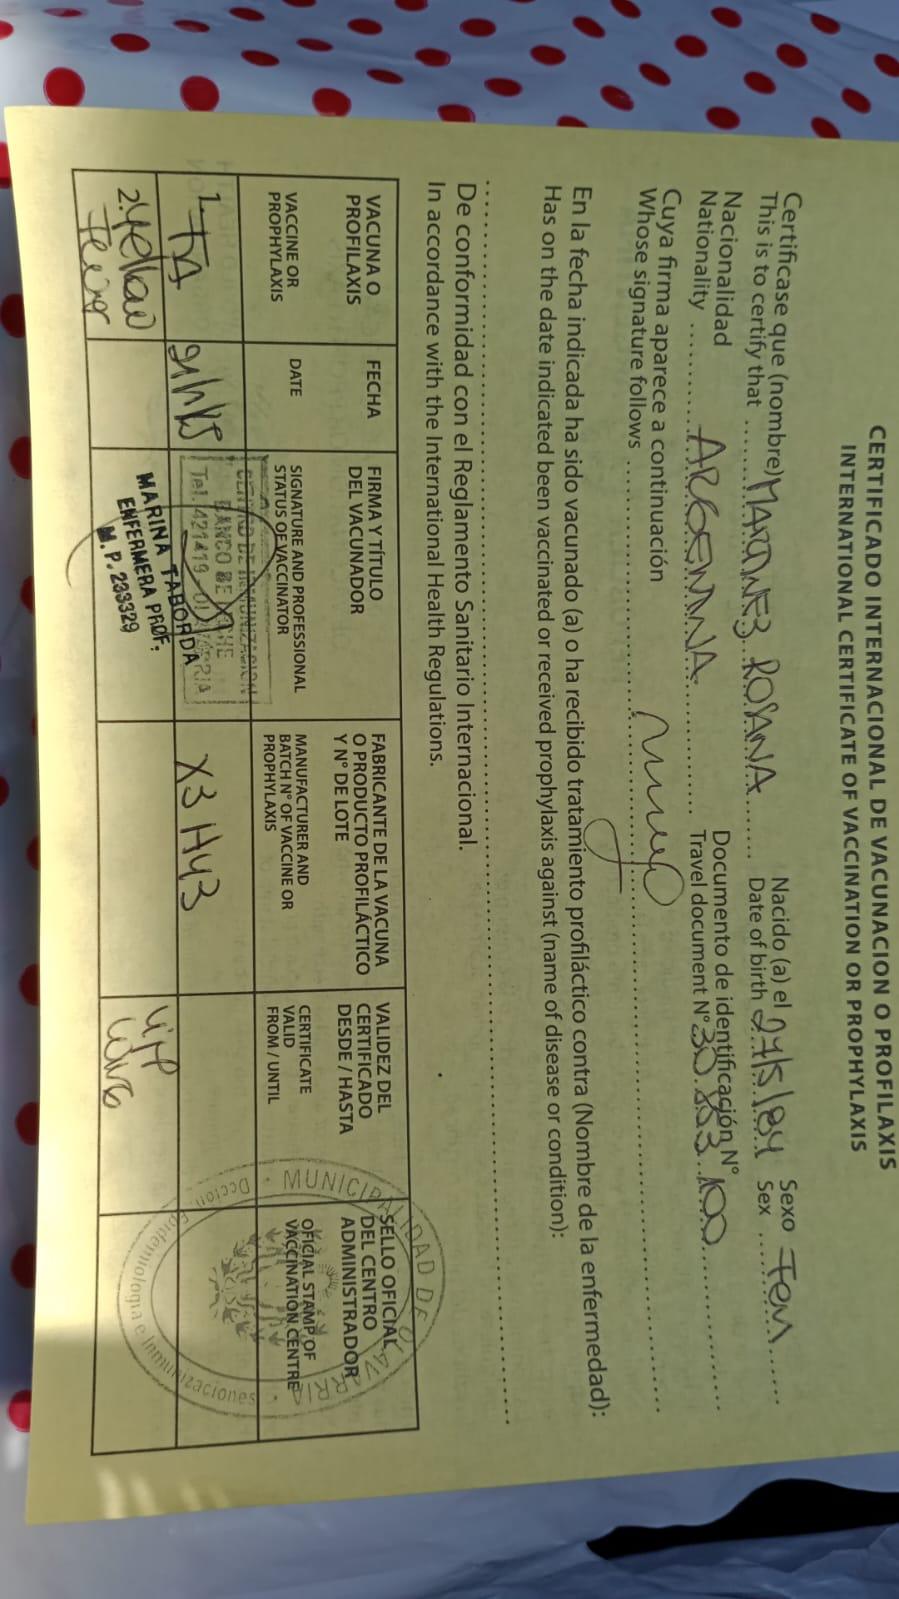 CERTIFICADO INTERNACIONAL DE VACUNACION O PROFILAXIS
INTERNATIONAL CERTIFICATE OF VACCINATION OR PROPHYLAXIS
Certificase que (nombre) MARTINEZ ROSANA Nacido (a) el 27/5/84 Sexo Fem
This is to certify that Date of birth Sex
Nacionalidad ARGENTINA Documento de identificación N°
Nationality Travel document N°
Cuya firma aparece a continuación
Whose signature follows
En la fecha indicada ha sido vacunado (a) o ha recibido tratamiento profiláctico contra (Nombre de la enfermedad):
Has on the date indicated been vaccinated or received prophylaxis against (name of disease or condition):
De conformidad con el Reglamento Sanitario Internacional.
In accordance with the International Health Regulations.
VACUNA O PROFILAXIS
VACCINE OR PROPHYLAXIS
FECHA
DATE
FIRMA Y TÍTULO DEL VACUNADOR
SIGNATURE AND PROFESSIONAL STATUS OF VACCINATOR
FABRICANTE DE LA VACUNA O PRODUCTO PROFILÁCTICO Y N° DE LOTE
MANUFACTURER AND BATCH N° OF VACCINE OR PROPHYLAXIS
VALIDEZ DEL CERTIFICADO DESDE / HASTA
CERTIFICATE VALID FROM / UNTIL
SELLO OFICIAL DEL CENTRO ADMINISTRADOR
OFICIAL STAMP OF VACCINATION CENTRE
1. X3H43
CENTRO DE INMUNIZACION
BANCO DE
Tel. 421419
2. Yellow Fever
MARINA TABORDA
ENFERMERA PROF.
M.P. 233329
MUNICIPALIDAD DE OLAVARRIA
Dccion Epidemiologia e Inmunizaciones